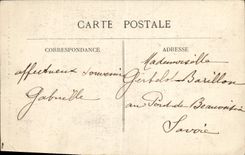 CARTE POSTALE
CORRESPONDANCE
ADRESSE
affectueux souvenir
Gabrielle
Mademoiselle
Barillon
au Pont-de-Beauvoisin
Savoie